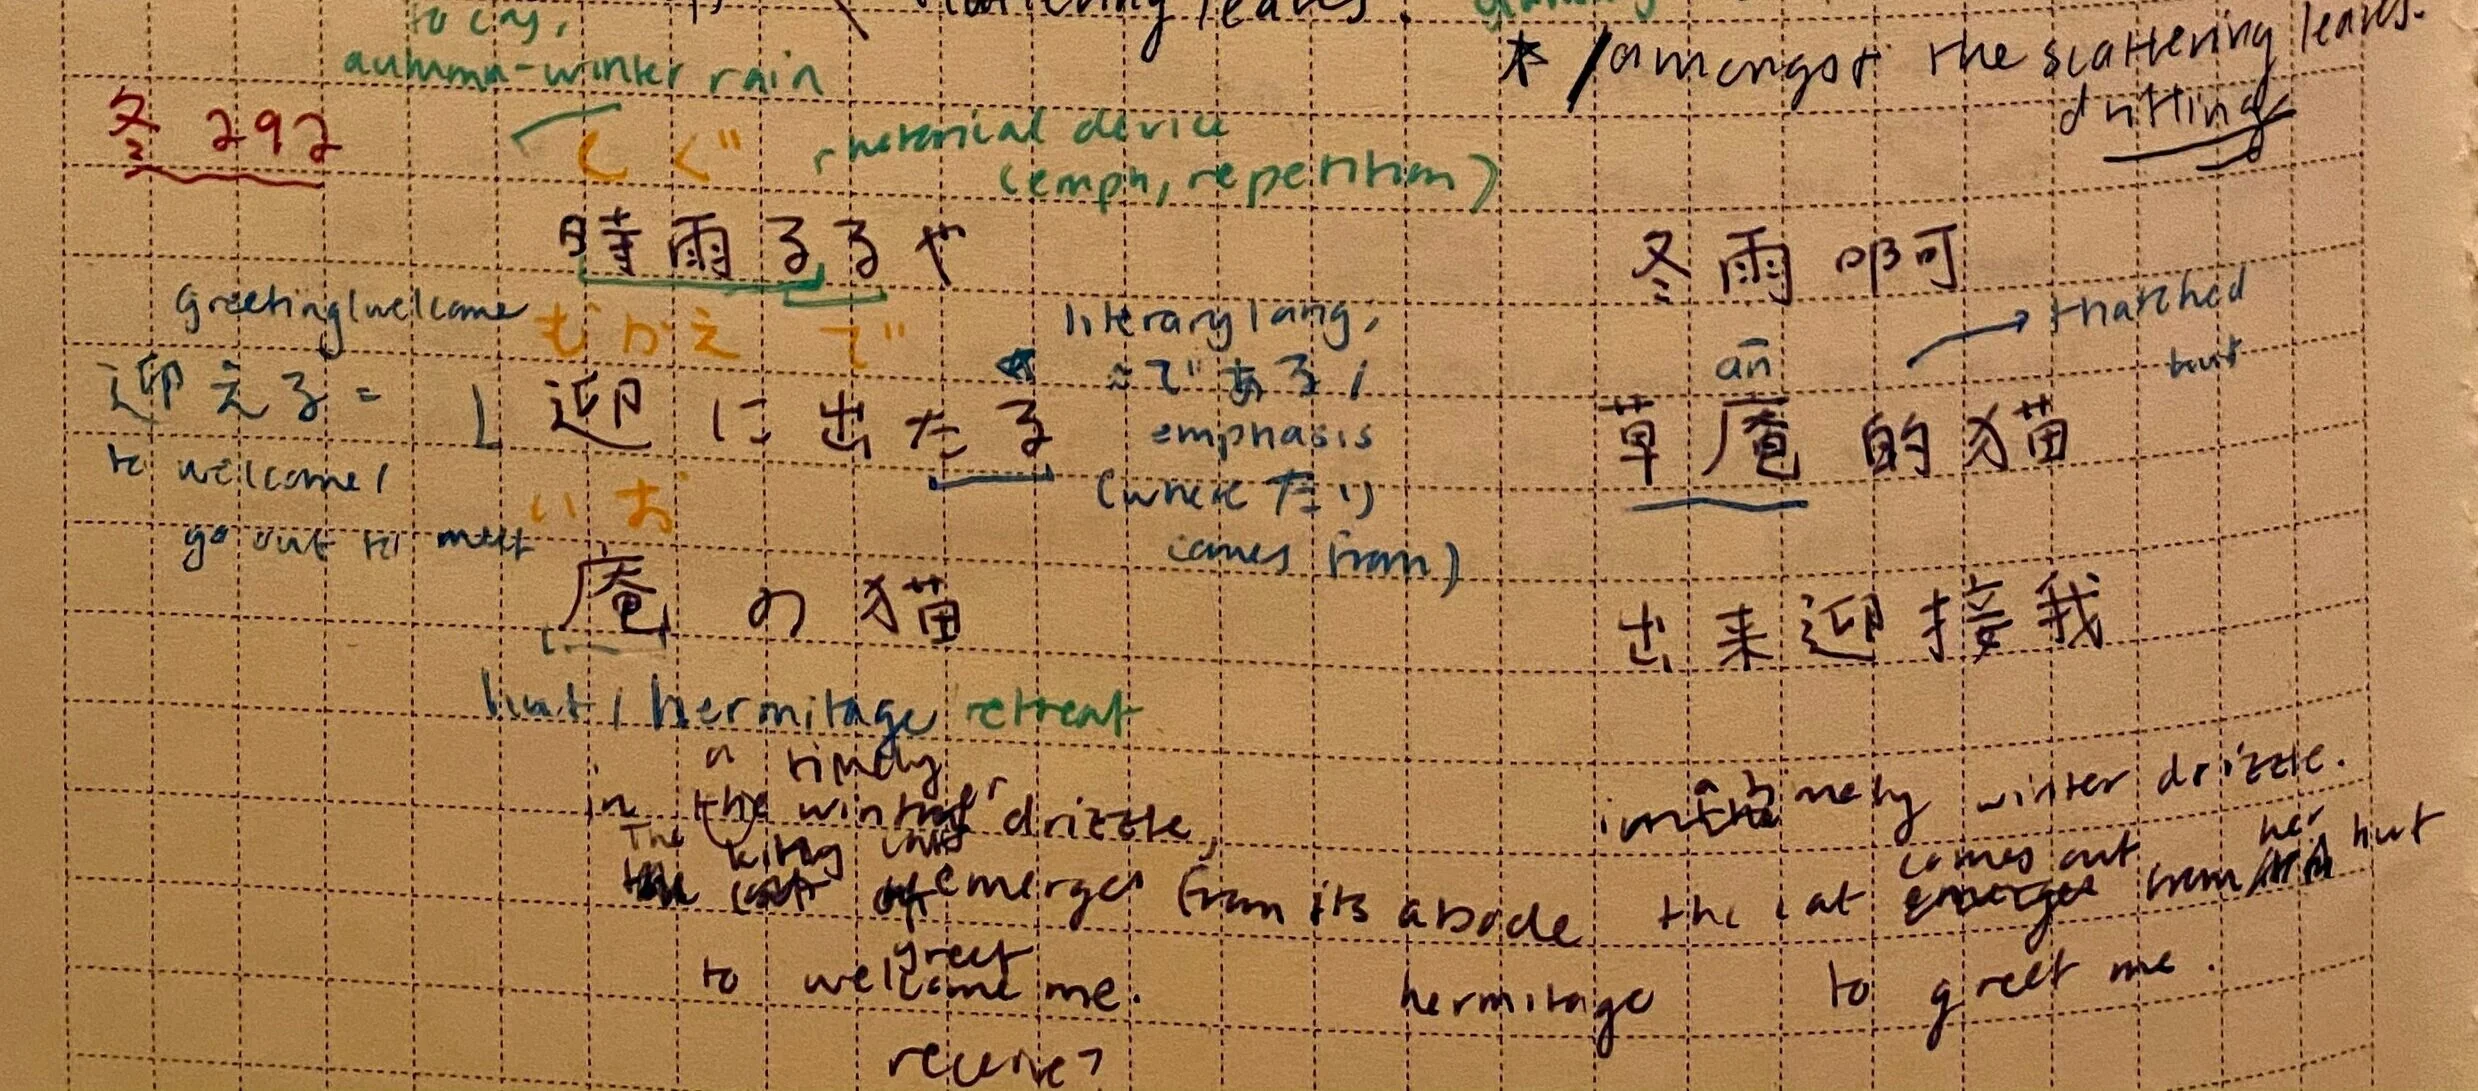 to cry,
scattering leaves.
autumn-winter rain
* /amongst the scattering leaves.
drifting
冬 292
しぐ
rhetorical device
(emph, repetition)
時雨るるや
冬雨啊
greeting/welcome
むかえ で
literary lang,
≈である/
emphasis
(where たり
comes from)
thatched
hut
ān
迎える =
to welcome/
go out to meet
迎に出たる
草庵的猫
いお
庵の猫
出来迎接我
hut/hermitage retreat
a timely
in the winter drizzle,
The kitty cat
emerges from its abode
greet
to welcome me.
receive?
hermitage
in a timely winter drizzle.
comes out her
the cat emerges from hut
to greet me.